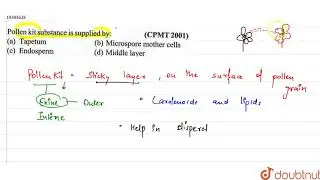 10383628
Pollen kit substance is supplied by: (CPMT 2001)
(a) Tapetum (b) Microspore mother cells
(c) Endosperm (d) Middle layer
Pollen Kit = Sticky layer, on the surface of pollen grain
Exine → Outer = Carotenoids and lipids
Intine
• Help in dispersal
doubtnut